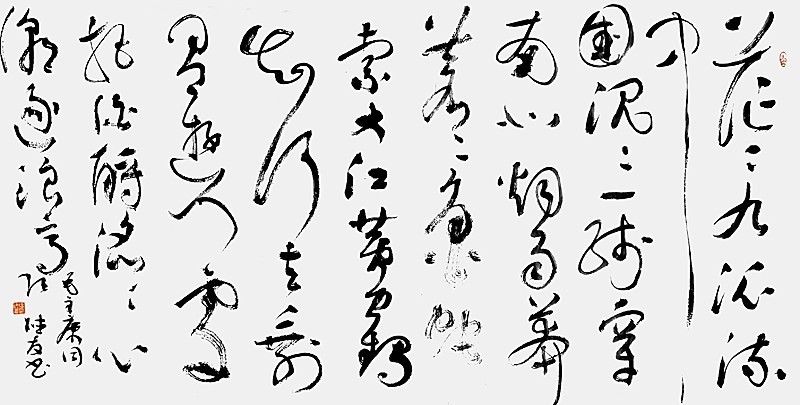 茫〻九派流
中
國沉〻一线穿
南北烟雨莽
苍〻龟蛇
锁大江黄鹤
知何去剩
有游人处
把酒酹滔〻心
潮逐浪高
毛主席词